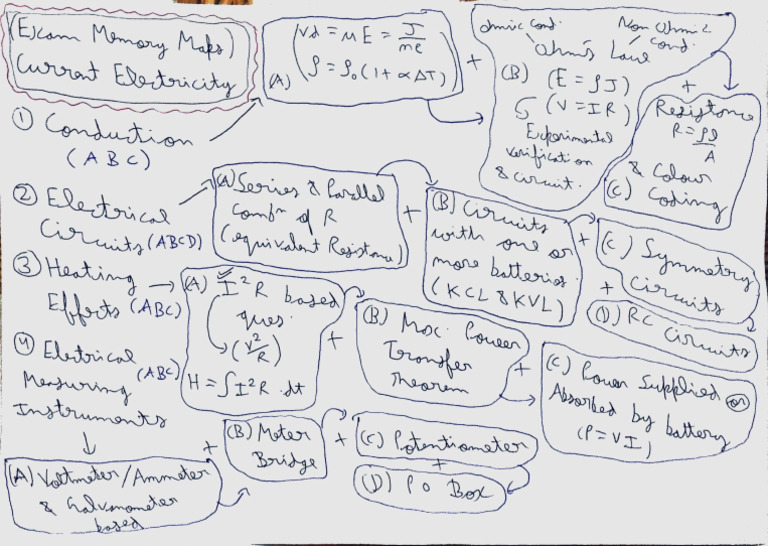 (Exam Memory Maps)
Current Electricity
① Conduction
(ABC)
(A) Vd = μE = J/ne
ρ = ρ₀(1+αΔT)
+
ohmic cond. Non Ohmic cond.
Ohm's Law
(B) (E = ρJ)
(V = IR)
Experimental
verification
& circuit.
+
Resistance
R = ρl/A
& Colour
(C) Coding
② Electrical
Circuits (ABCD)
(A) Series & Parallel
Combⁿ of R
(equivalent Resistance)
+
(B) Circuits
with one or
more batteries.
(KCL & KVL)
+
(C) Symmetry
Circuits
+
(D) RC Circuits
③ Heating
Effects (ABC)
(A) I²R based
ques.
(V²/R)
H = ∫I²R.dt
+
(B) Max. Power
Transfer
Theorem
+
(C) Power Supplied or
Absorbed by battery
(P = VI)
④ Electrical (ABC)
Measuring
Instruments
(A) Voltmeter/Ammeter
& Galvanometer
based
+
(B) Meter
Bridge
+
(C) Potentiometer
+
(D) PO Box